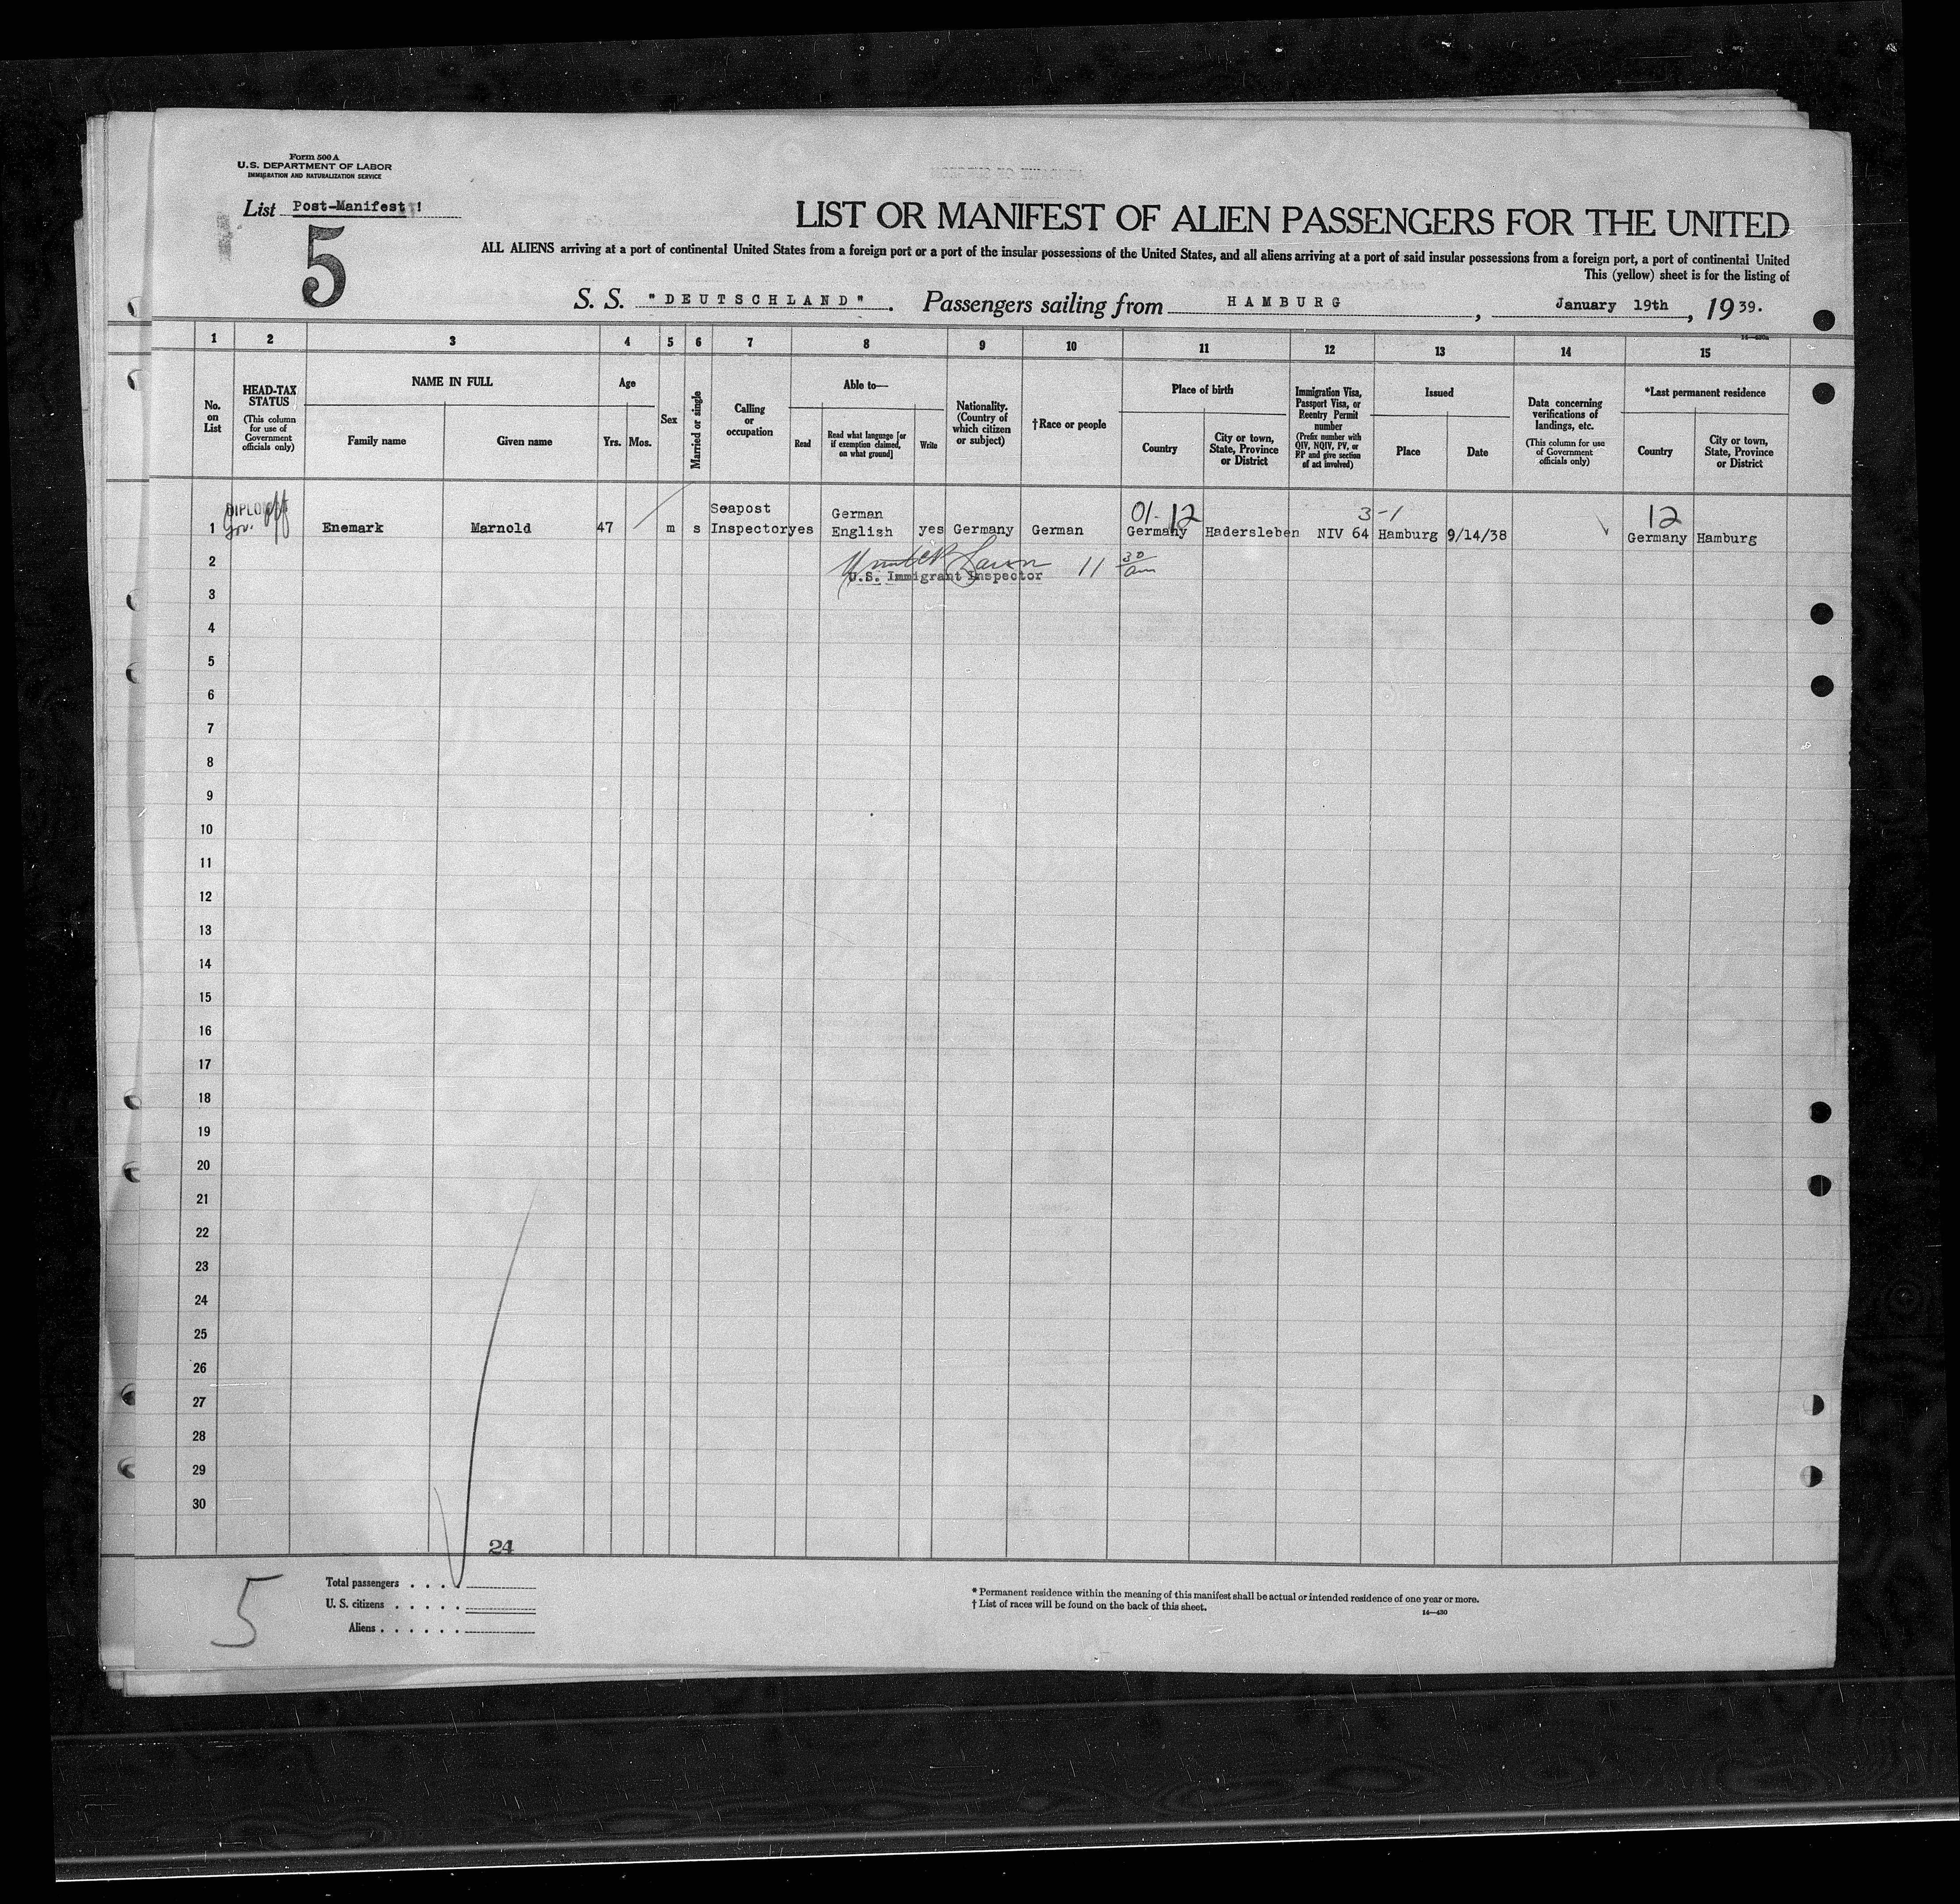 Form 500 A
U.S. DEPARTMENT OF LABOR
IMMIGRATION AND NATURALIZATION SERVICE
List Post-Manifest 1
5
LIST OR MANIFEST OF ALIEN PASSENGERS FOR THE UNITED
ALL ALIENS arriving at a port of continental United States from a foreign port or a port of the insular possessions of the United States, and all aliens arriving at a port of said insular possessions from a foreign port, a port of continental United
This (yellow) sheet is for the listing of
S. S. "DEUTSCHLAND". Passengers sailing from HAMBURG, January 19th, 1939.
1 2 3 4 5 6 7 8 9 10 11 12 13 14 15
No. on List
HEAD-TAX STATUS (This column for use of Government officials only)
NAME IN FULL
Family name Given name
Age
Yrs. Mos.
Sex
Married or single
Calling or occupation
Able to—
Read
Read what language [or if exemption claimed, on what ground]
Write
Nationality. (Country of which citizen or subject)
†Race or people
Place of birth
Country
City or town, State, Province or District
Immigration Visa, Passport Visa, or Reentry Permit number (Prefix number with QIV, NQIV, PV, or RP and give section of act involved)
Issued
Place Date
Data concerning verifications of landings, etc. (This column for use of Government officials only)
*Last permanent residence
Country
City or town, State, Province or District
DIPLOMAT Seapost German 01-12 3-1 12
1 Gov. off Enemark Marnold 47 m s Inspector yes English yes Germany German Germany Hadersleben NIV 64 Hamburg 9/14/38 Germany Hamburg
2 U.S. Immigrant Inspector 11 30 am
3
4
5
6
7
8
9
10
11
12
13
14
15
16
17
18
19
20
21
22
23
24
25
26
27
28
29
30
24
5
Total passengers . . . .
U. S. citizens . . . . .
Aliens . . . . . .
* Permanent residence within the meaning of this manifest shall be actual or intended residence of one year or more.
† List of races will be found on the back of this sheet.
14—430